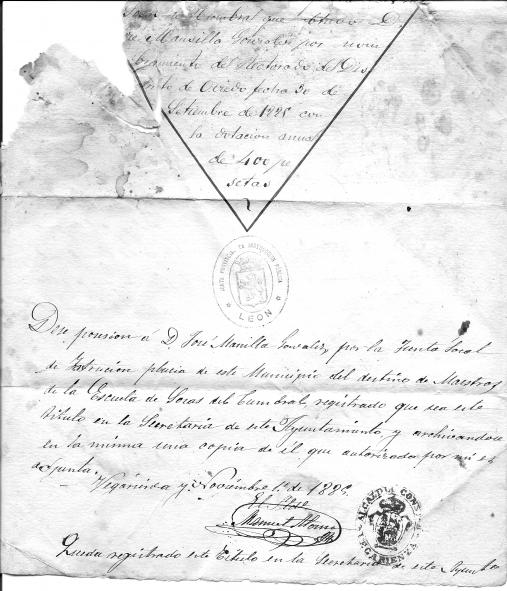 Mansilla Gonzalez por nom
bramiento del Rectorado del Dis
trito de Oviedo fecha 30 de
Setiembre de 188
con
la dotacion anual
de 400 pe
setas
JUNTA PROVINCIAL DE INSTRUCCION PUBLICA
LEON
Dese posesion á D. José Mansilla Gonzalez, por la Junta Local
de Instrucion publica de este Municipio del destino de Maestro
de la Escuela de Socas del Cumbral, registrado que sea este
titulo en la Secretaria de este Ayuntamiento y archivandose
en la misma una copia de el que autorizada por mi se
adjunta.
Vegarienza y Noviembre 1º de 188
El Alcde
Manuel
ALCALDIA CONST
VEGARIENZA
Queda registrado este Titulo en la Secretaria de este Ayunt